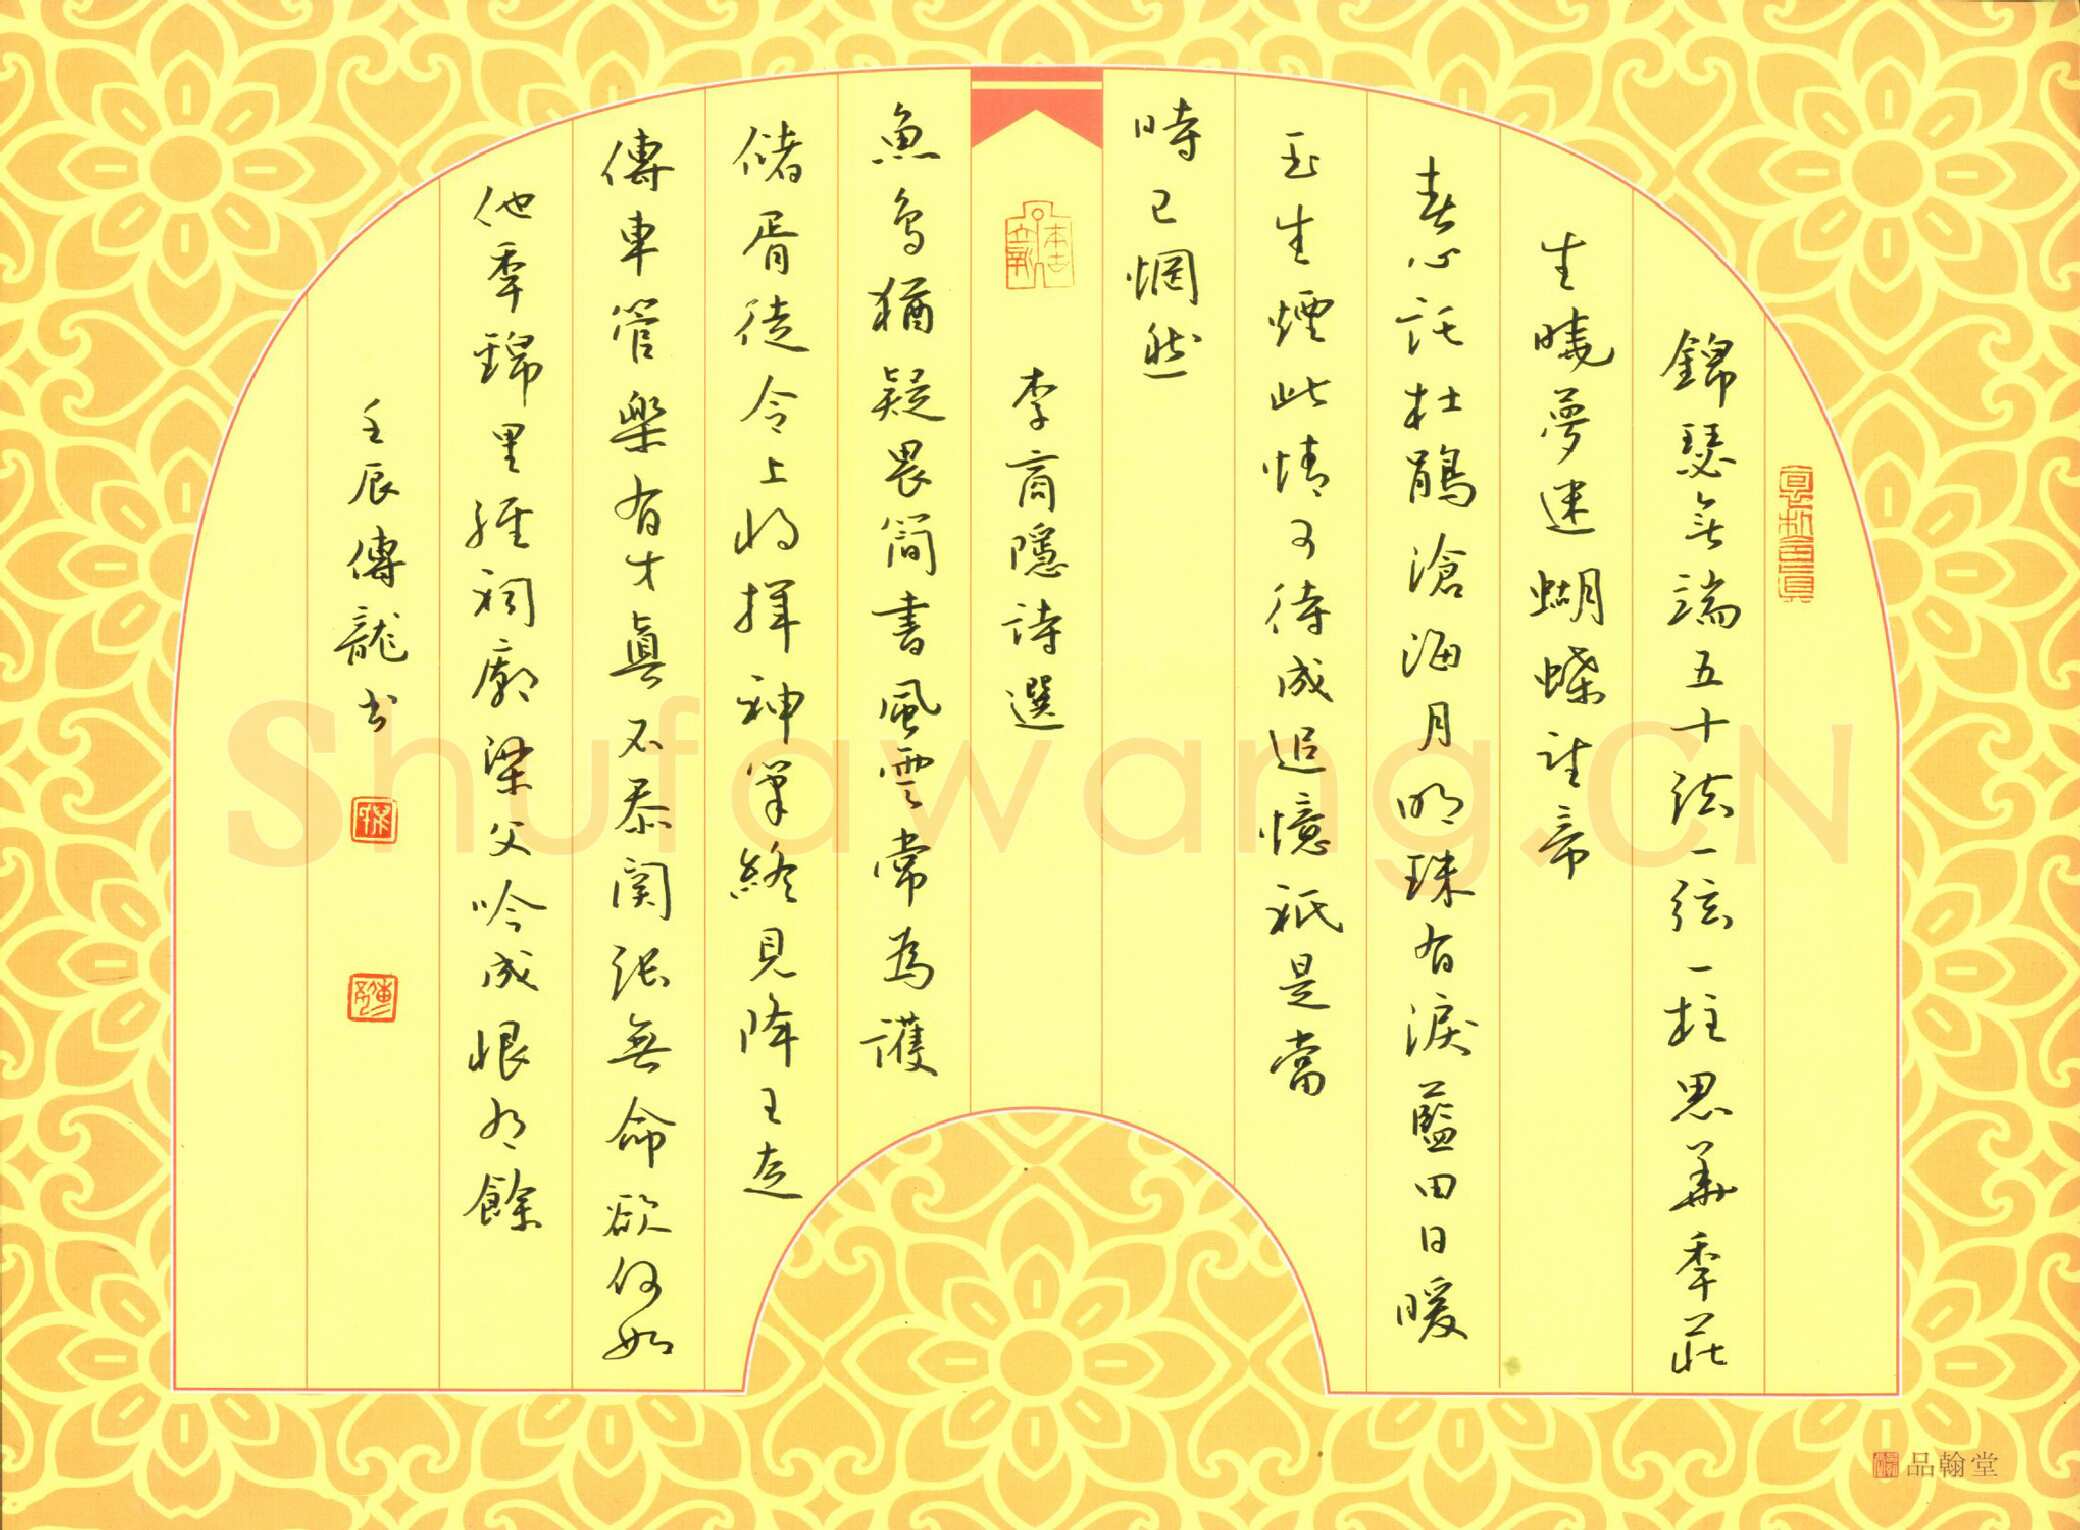 錦瑟無端五十弦一弦一柱思華年莊
生曉夢迷蝴蝶望帝
春心託杜鵑滄海月明珠有淚藍田日暖
玉生煙此情可待成追憶祇是當
時已惘然
李商隱詩選
魚鳥猶疑畏簡書風雲常為護
儲胥徒令上將揮神筆終見降王走
傳車管樂有才真不忝關張無命欲何如
他年錦里經祠廟梁父吟成恨有餘
壬辰傳龍书
品翰堂
Shufawang.CN